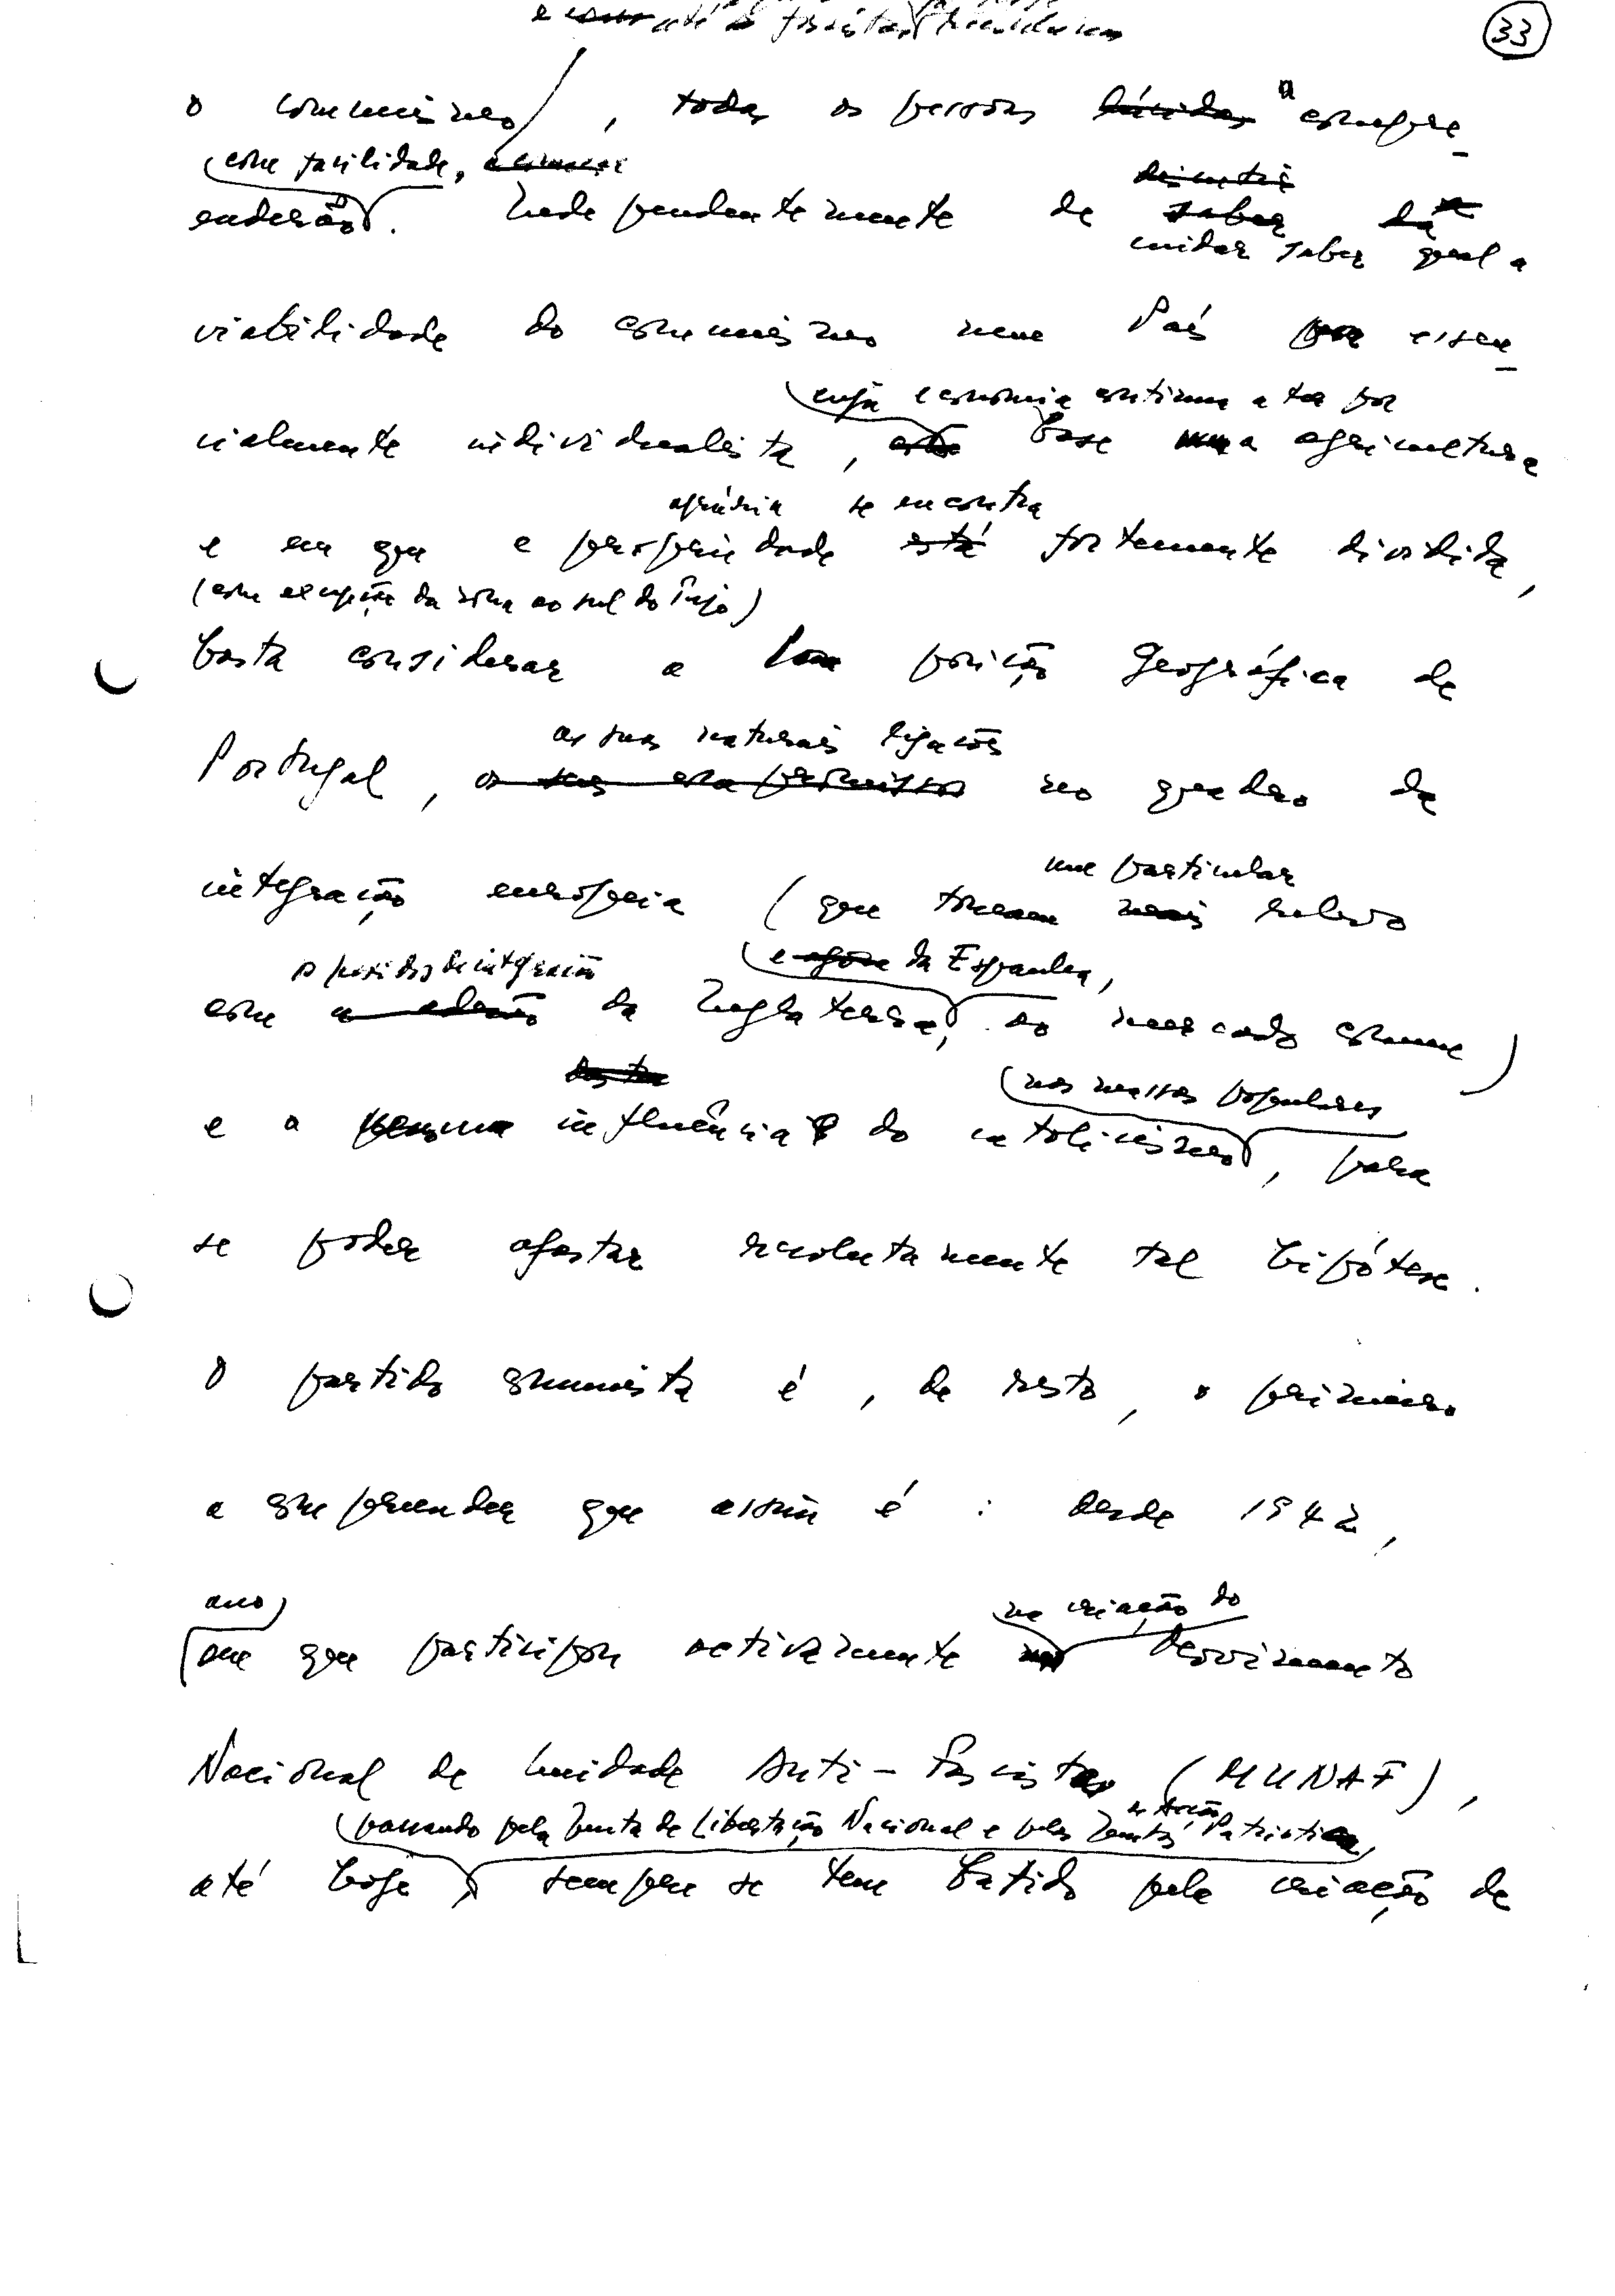 33
até
o comunismo, todas as pessoas a compre-
com facilidade,
enderão. Independentemente de
cuidar saber qual a
viabilidade do comunismo num País essen-
cuja economia continua a ter por
cialmente individualista, base a agricultura
agrária se encontra
e em que a propriedade está fortemente dividida,
(com excepção da zona ao sul do Tejo)
basta considerar a posição geográfica de
as suas naturais ligações
Portugal, no quadro da
um particular
integração europeia (que tomam mais relevo
o pedido de integração e agora da Espanha,
com a adesão da Inglaterra, ao mercado comum)
nas massas populares
e a influência do catolicismo, para
se poder afastar resolutamente tal hipótese.
O partido comunista é, de resto, o primeiro
a compreender que assim é: desde 1942,
ano na criação do
em que participou activamente Movimento
Nacional de Unidade Anti-Fascista (MUNAF),
passando pela Junta de Libertação Nacional e pelas Juntas de Acção Patriótica,
até hoje, sempre se tem batido pela criação de